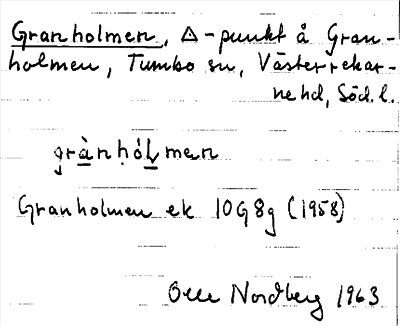 Granholmen, △-punkt å Gran-
holmen, Tumbo sn, Västerrekar-
ne hd, Söd. l.
grànhól̀men
Granholmen ek 10G8g (1958)
Olle Nordberg 1963